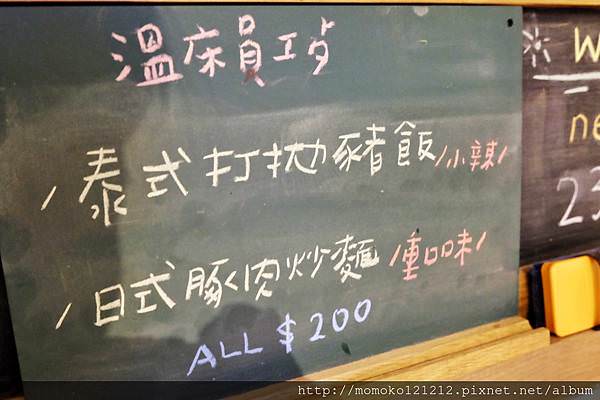 溫床員工勺
/泰式打拋豬飯/小辣/
/日式豚肉炒麵/重口味/
ALL $200
※ W
ne
23
http://momoko121212.pixnet.net/album